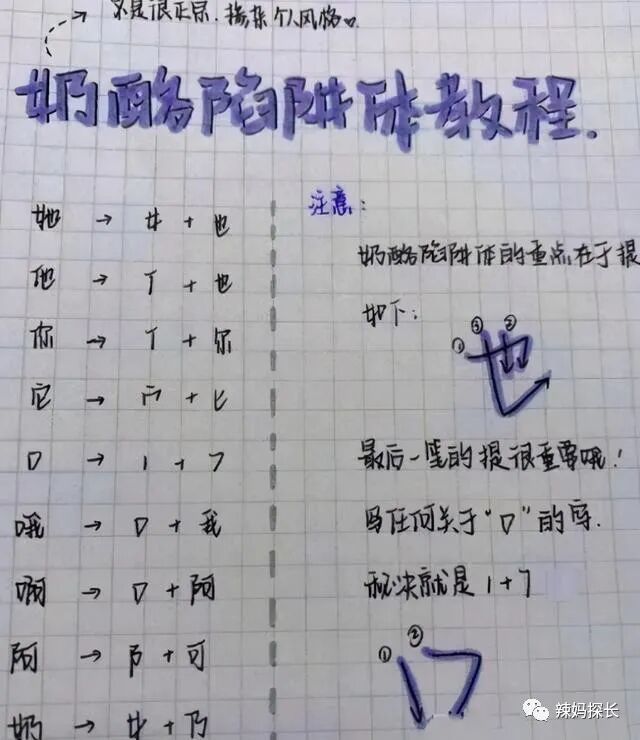 不是很正宗.掺杂个人风格。
奶酪陷阱体教程.
她 → 女 + 也
他 → 亻 + 也
你 → 亻 + 尔
它 → 宀 + 匕
口 → 1 + 7
哦 → 口 + 我
啊 → 口 + 阿
阿 → 阝 + 可
奶 → 女 + 乃
注意:
奶酪陷阱体的重点在于提
如下:
① ③ ②
也
最后一笔的提很重要哦!
写任何关于“口”的字.
秘决就是 1 + 7
① ②
口
辣妈探长